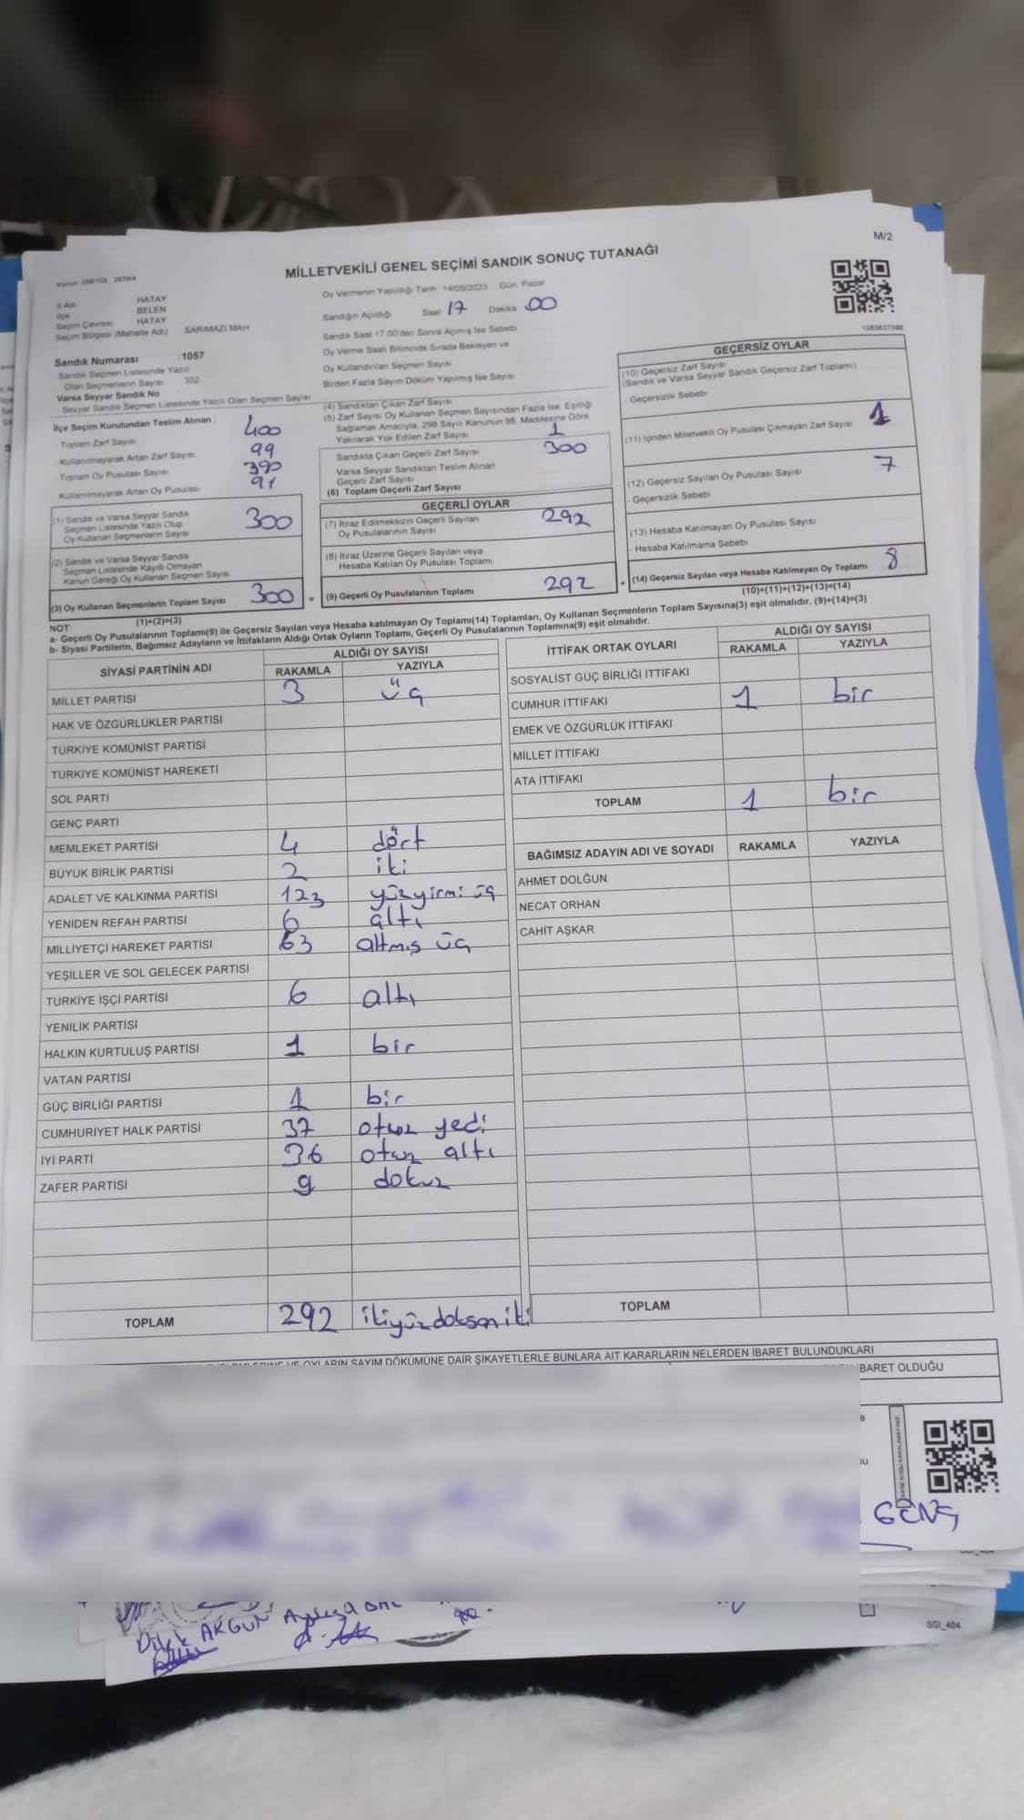 M/2
MİLLETVEKİLİ GENEL SEÇİMİ SANDIK SONUÇ TUTANAĞI
İl Adı HATAY
İlçe BELEN
Seçim Çevresi HATAY
Seçim Bölgesi (Mahalle Adı) SARIMAZI MAH
Sandık Numarası :1057
Sandık Seçmen Listesinde Yazılı
Olan Seçmenlerin Sayısı 352
Varsa Seyyar Sandık No
Seyyar Sandık Seçmen Listesinde Yazılı Olan Seçmen Sayısı
Oy Vermenin Yapıldığı Tarih 14/05/2023 Gün Pazar
Sandığın Açıldığı Saat 17 Dakika 00
Sandık Saat 17.00'den Sonra Açılmış İse Sebebi
Oy Verme Saati Bitiminde Sırada Bekleyen ve
Oy Kullandırılan Seçmen Sayısı
Birden Fazla Sayım Döküm Yapılmış İse Sayısı
İlçe Seçim Kurulundan Teslim Alınan :
Toplam Zarf Sayısı 400
Kullanılmayarak Artan Zarf Sayısı 99
Toplam Oy Pusulası Sayısı 390
Kullanılmayarak Artan Oy Pusulası 91
(1) Sandık ve Varsa Seyyar Sandık
Seçmen Listesinde Yazılı Olup
Oy Kullanan Seçmenlerin Sayısı 300
(2) Sandık ve Varsa Seyyar Sandık
Seçmen Listesinde Kayıtlı Olmayan
Kanun Gereği Oy Kullanan Seçmen Sayısı
(3) Oy Kullanan Seçmenlerin Toplam Sayısı 300
(1)+(2)=(3)
(4) Sandıktan Çıkan Zarf Sayısı
(5) Zarf Sayısı Oy Kullanan Seçmen Sayısından Fazla İse, Eşitliği
Sağlamak Amacıyla, 298 Sayılı Kanunun 98. Maddesine Göre
Yakılarak Yok Edilen Zarf Sayısı 1
Sandıkta Çıkan Geçerli Zarf Sayısı 300
Varsa Seyyar Sandıktan Teslim Alınan
Geçerli Zarf Sayısı
(6) Toplam Geçerli Zarf Sayısı
GEÇERLİ OYLAR
(7) İtiraz Edilmeksizin Geçerli Sayılan
Oy Pusulalarının Sayısı 292
(8) İtiraz Üzerine Geçerli Sayılan veya
Hesaba Katılan Oy Pusulası Toplamı
(9) Geçerli Oy Pusulalarının Toplamı 292
GEÇERSİZ OYLAR
(10) Geçersiz Zarf Sayısı
(Sandık ve Varsa Seyyar Sandık Geçersiz Zarf Toplamı)
Geçersizlik Sebebi
(11) İçinden Milletvekili Oy Pusulası Çıkmayan Zarf Sayısı 1
(12) Geçersiz Sayılan Oy Pusulası Sayısı 7
Geçersizlik Sebebi
(13) Hesaba Katılmayan Oy Pusulası Sayısı
Hesaba Katılmama Sebebi
(14) Geçersiz Sayılan veya Hesaba Katılmayan Oy Toplamı 8
(10)+(11)+(12)+(13)=(14)
NOT:
a- Geçerli Oy Pusulalarının Toplamı(9) ile Geçersiz Sayılan veya Hesaba katılmayan Oy Toplamı(14) Toplamları, Oy Kullanan Seçmenlerin Toplam Sayısına(3) eşit olmalıdır. (9)+(14)=(3)
b- Siyasi Partilerin, Bağımsız Adayların ve İttifakların Aldığı Ortak Oyların Toplamı, Geçerli Oy Pusulalarının Toplamına(9) eşit olmalıdır.
SİYASİ PARTİNİN ADI ALDIĞI OY SAYISI
RAKAMLA YAZIYLA
MİLLET PARTİSİ 3 üç
HAK VE ÖZGÜRLÜKLER PARTİSİ
TÜRKİYE KOMÜNİST PARTİSİ
TÜRKİYE KOMÜNİST HAREKETİ
SOL PARTİ
GENÇ PARTİ
MEMLEKET PARTİSİ 4 dört
BÜYÜK BİRLİK PARTİSİ 2 iki
ADALET VE KALKINMA PARTİSİ 123 yüzyirmi üç
YENİDEN REFAH PARTİSİ 6 altı
MİLLİYETÇİ HAREKET PARTİSİ 63 altmış üç
YEŞİLLER VE SOL GELECEK PARTİSİ
TÜRKİYE İŞÇİ PARTİSİ 6 altı
YENİLİK PARTİSİ
HALKIN KURTULUŞ PARTİSİ 1 bir
VATAN PARTİSİ
GÜÇ BİRLİĞİ PARTİSİ 1 bir
CUMHURİYET HALK PARTİSİ 37 otuz yedi
İYİ PARTİ 36 otuz altı
ZAFER PARTİSİ 9 dokuz
TOPLAM 292 ikiyüzdoksaniki
İTTİFAK ORTAK OYLARI ALDIĞI OY SAYISI
RAKAMLA YAZIYLA
SOSYALİST GÜÇ BİRLİĞİ İTTİFAKI
CUMHUR İTTİFAKI 1 bir
EMEK VE ÖZGÜRLÜK İTTİFAKI
MİLLET İTTİFAKI
ATA İTTİFAKI
TOPLAM 1 bir
BAĞIMSIZ ADAYIN ADI VE SOYADI RAKAMLA YAZIYLA
AHMET DOLĞUN
NECAT ORHAN
CAHİT AŞKAR
TOPLAM
VE OYLARIN SAYIM DÖKÜMÜNE DAİR ŞİKAYETLERLE BUNLARA AİT KARARLARIN NELERDEN İBARET BULUNDUKLARI
BARET OLDUĞU
GENÇ
Dilek AKGÜN